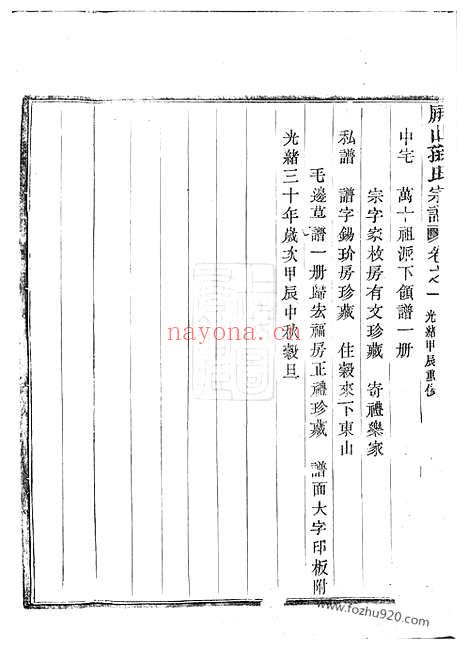 屏山孫氏宗譜 卷六之一 光緒甲辰重修
中宅 萬十祖派下領譜一册
宗字家枚房有文珍藏 寄禮樂家
私譜 譜字錫玠房珍藏 住穀來下東山
毛邊草譜一册歸宏福房正禮珍藏 譜面大字印板附
光緒三十年歲次甲辰中秋穀旦
nayona.cn
www.fozhu920.com